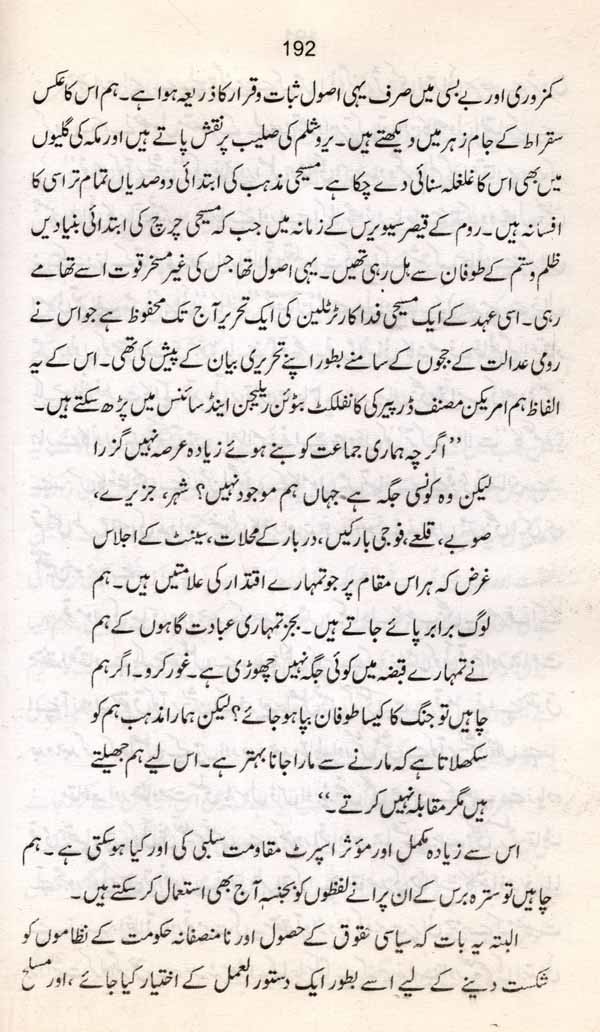 192
کمزوری اور بے بسی میں صرف یہی اصول ثبات و قرار کا ذریعہ ہوا ہے۔ ہم اس کا عکس
سقراط کے جام زہر میں دیکھتے ہیں۔ یروشلم کی صلیب پر نقش پاتے ہیں اور مکہ کی گلیوں
میں بھی اس کا غلغلہ سنائی دے چکا ہے۔ مسیحی مذہب کی ابتدائی دو صدیاں تمام تر اسی کا
افسانہ ہیں۔ روم کے قیصر سیویرس کے زمانہ میں جب کہ مسیحی چرچ کی ابتدائی بنیادیں
ظلم و ستم کے طوفان سے ہل رہی تھیں۔ یہی اصول تھا جس کی غیر مسخر قوت اسے تھامے
رہی۔ اسی عہد کے ایک مسیحی فداکار ٹرٹلین کی ایک تحریر آج تک محفوظ ہے جو اس نے
رومی عدالت کے ججوں کے سامنے بطور اپنے تحریری بیان کے پیش کی تھی۔ اس کے یہ
الفاظ ہم امریکن مصنف ڈرپیر کی کانفلکٹ بٹوئن ریلیجن اینڈ سائنس میں پڑھ سکتے ہیں۔
”اگرچہ ہماری جماعت کو بنے ہوئے زیادہ عرصہ نہیں گزرا
لیکن وہ کونسی جگہ ہے جہاں ہم موجود نہیں؟ شہر، جزیرے،
صوبے، قلعے، فوجی بارکیں، دربار کے محلات، سینٹ کے اجلاس
غرض کہ ہر اس مقام پر جو تمہارے اقتدار کی علامتیں ہیں۔ ہم
لوگ برابر پائے جاتے ہیں۔ بجز تمہاری عبادت گاہوں کے ہم
نے تمہارے قبضہ میں کوئی جگہ نہیں چھوڑی ہے۔ غور کرو۔ اگر ہم
چاہیں تو جنگ کا کیسا طوفان بپا ہو جائے؟ لیکن ہمارا مذہب ہم کو
سکھلاتا ہے کہ مارنے سے مارا جانا بہتر ہے۔ اس لیے ہم جھیلتے
ہیں مگر مقابلہ نہیں کرتے۔“
اس سے زیادہ مکمل اور مؤثر اسپرٹ مقاومت سلبی کی اور کیا ہو سکتی ہے۔ ہم
چاہیں تو سترہ برس کے ان پرانے لفظوں کو بجنسہٖ آج بھی استعمال کر سکتے ہیں۔
البتہ یہ بات کہ سیاسی حقوق کے حصول اور نامنصفانہ حکومت کے نظاموں کو
شکست دینے کے لیے اسے بطور ایک دستور العمل کے اختیار کیا جائے، اور مسلح